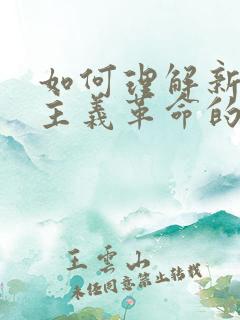 如何理解新
主義革命的
王雲山
未经同意禁止转载